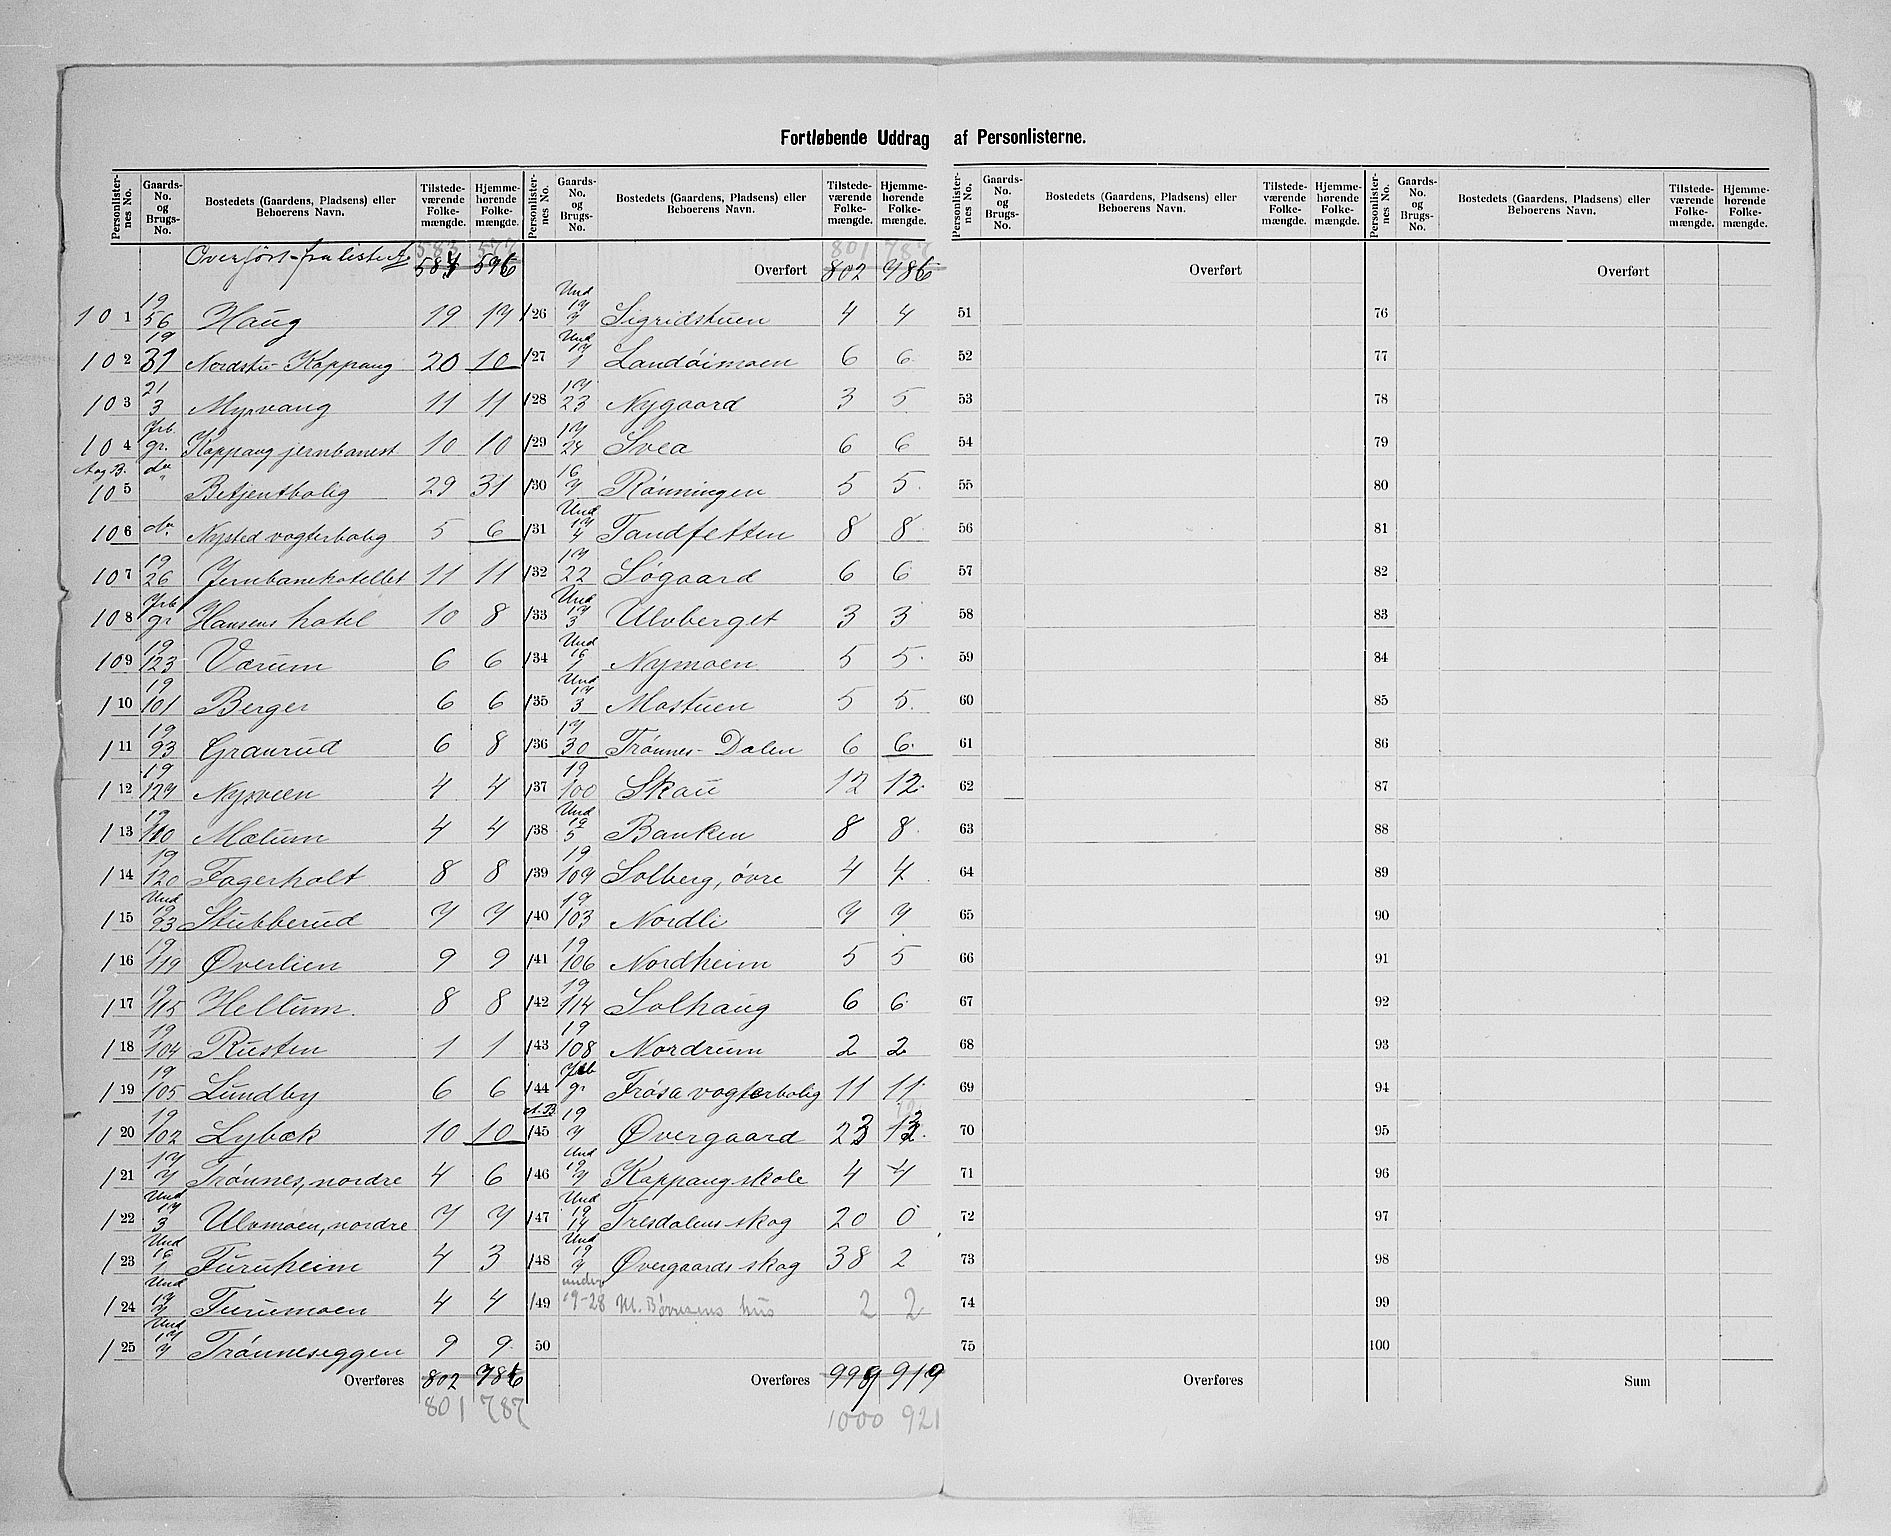 Fortløbende Uddrag af Personlisterne.
Personlister-nes No. | Gaards-No. og Brugs-No. | Bostedets (Gaardens, Pladsens) eller Beboerens Navn. | Tilstede-værende Folke-mængde. | Hjemme-hørende Folke-mængde.
Overført fra liste A 583 577
584 576
101 19/56 Haug 19 17
102 19/31 Nordstu-Koppang 20 10
103 21/3 Myrvang 11 11
104 Jrb. gr. Koppang jernbanest 10 10
105 do Betjentbolig 29 31
106 do. Nysted vogterbolig 5 6
107 19/26 Jernbanehotellet 11 11
108 Jrb gr Hansens hotel 10 8
109 19/123 Værum 6 6
110 19/101 Berger 6 6
111 19/93 Granrud 6 8
112 19/127 Nysveen 4 4
113 19/110 Mælum 4 4
114 19/120 Fagerholt 8 8
115 Und 19/93 Stubberud 7 7
116 19/119 Øverlien 9 9
117 19/115 Hellum. 8 8
118 19/104 Rusten 1 1
119 19/105 Lundby 6 6
120 19/102 Lybæk 10 10
121 17/7 Trønnes, nordre 4 6
122 Und 17/3 Ulvmoen, nordre 7 7
123 Und 16/1 Furuheim 4 3
124 Und 17/7 Furumoen 4 4
125 Und 17/7 Trønneseggen 9 9
Overføres 802 786
801 787
Personlister-nes No. | Gaards-No. og Brugs-No. | Bostedets (Gaardens, Pladsens) eller Beboerens Navn. | Tilstede-værende Folke-mængde. | Hjemme-hørende Folke-mængde.
801 787
Overført 802 786
126 Und 17/7 Sigridstuen 4 4
127 Und 17/1 Landøimoen 6 6
128 17/23 Nygaard 3 5
129 17/24 Svea 6 6
130 16/7 Rønningen 5 5
131 Und 17/4 Tandfetten 8 8
132 17/22 Søgaard 6 6
133 Und 17/3 Ulvberget 3 3
134 Und 16/1 Nymoen 5 5
135 Und 17/3 Mostuen 5 5
136 17/30 Trønnes-Dalen 6 6
137 19/100 Skau 12 12
138 Und 19/5 Banken 8 8
139 19/109 Solberg, øvre 4 4
140 19/103 Nordli 7 7
141 19/106 Nordheim 5 5
142 19/114 Solhaug 6 6
143 19/108 Nordrum 2 2
144 Jrb gr Frøsa vogterbolig 11 11
145 19/7 Øvergaard 23 13
146 Und 19/7 Koppang skole 4 4
147 Und 19/14 Tresdalens skog 20 0
148 Und 19/7 Øvergaards skog 38 2
149 under 19-28 M. Børresens hus 2 2
50
Overføres 999 919
1000 921
Personlister-nes No. | Gaards-No. og Brugs-No. | Bostedets (Gaardens, Pladsens) eller Beboerens Navn. | Tilstede-værende Folke-mængde. | Hjemme-hørende Folke-mængde.
Overført
51
52
53
54
55
56
57
58
59
60
61
62
63
64
65
66
67
68
69
70
71
72
73
74
75
Overføres
Personlister-nes No. | Gaards-No. og Brugs-No. | Bostedets (Gaardens, Pladsens) eller Beboerens Navn. | Tilstede-værende Folke-mængde. | Hjemme-hørende Folke-mængde.
Overført
76
77
78
79
80
81
82
83
84
85
86
87
88
89
90
91
92
93
94
95
96
97
98
99
100
Sum